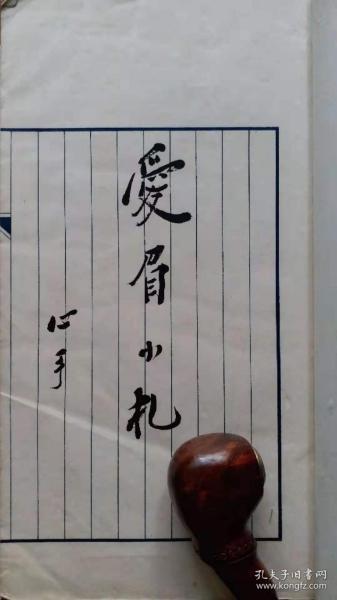 愛眉小札
心手
孔夫子旧书网
www.kongfz.com